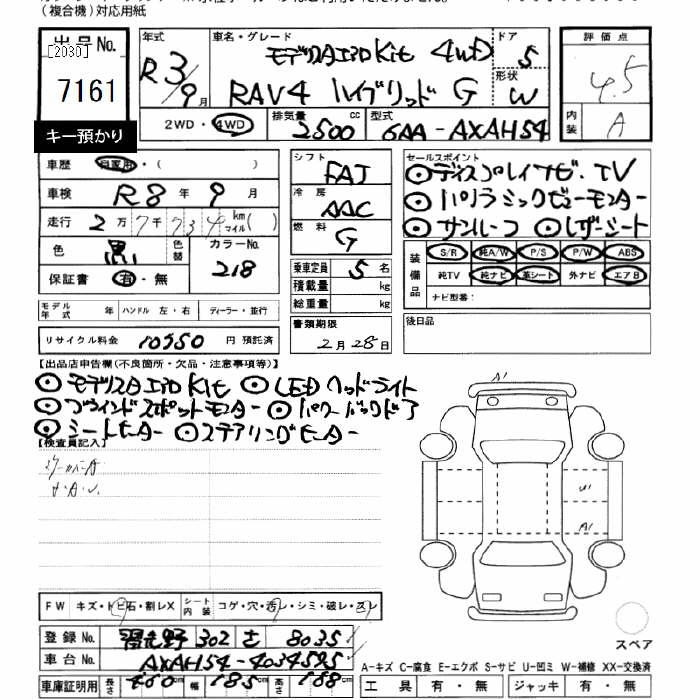 (複合機)対応用紙
出品No.
[2030]
7161
キー預かり
年式
R3/9月
車名・グレード
モデリスタエアロKit 4WD
RAV4 ハイブリッド G
ドア
5
形状
W
2WD・4WD
排気量
2500cc
型式
6AA-AXAH54
評価点
4.5
内装
A
車歴
自家用・( )
車検
R8年9月
走行
2万7千734km
マイル( )
色
黒
色替
カラーNo.
218
保証書
有・無
シフト
FAT
冷房
AAC
燃料
G
乗車定員 5名
積載量 kg
総重量 kg
セールスポイント
◎ディスプレイナビ、TV
◎パノラミックビューモニター
◎サンルーフ ◎レザーシート
装備品
S/R 純A/W P/S P/W ABS
純TV 純ナビ 革シート 外ナビ エアB
ナビ型番:
モデル年式 年 ハンドル 左・右 ディーラー・並行
リサイクル料金 10550円 預託済
書類期限
2月28日
後日品
【出品店申告欄(不良箇所・欠品・注意事項等)】
◎モデリスタエアロKit ◎LEDヘッドライト
◎ブラインドスポットモニター ◎パワーバックドア
◎シートヒーター ◎ステアリングヒーター
【検査員記入】
A1
A1
FW キズ・トビ石・割レX
シート内装 コゲ・穴・汚レ・シミ・破レ・スレ
登録No. 習志野 302 8035
車台No. AXAH54-4034595
車庫証明用 長さ 460cm 幅 185cm 高さ 168cm
スペア
A-キズ C-腐食 E-エクボ S-サビ U-凹ミ W-補修 XX-交換済
工具 有・無 ジャッキ 有・無